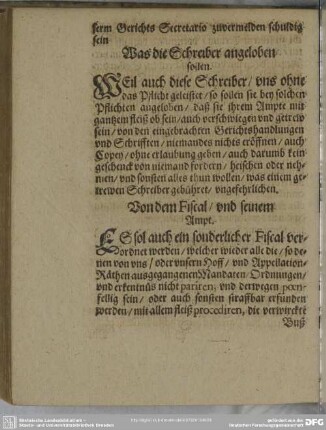 serm Gerichts Secretario zuvermelden schuldig
sein
Was die Schreiber angeloben
sollen.
WEil auch diese Schreiber / vns ohne
das Pflicht geleistet / so sollen sie bey solchen
Pflichten angeloben / daß sie ihrem Ampte mit
gantzem fleiß ob sein / auch verschwiegen vnd getrew
sein / von den eingebrachten Gerichtshandlungen
vnd Schrifften / niemandes nichts eröffnen / auch
Copey / ohne erlaubung geben / auch darumb kein
geschenck von niemand fordern / heischen oder neh-
men / vnd sonsten alles thun wollen / was einem ge-
trewen Schreiber gebühret / vngefehrlichen.
Von dem Fiscal / vnd seinem
Ampt.
ES sol auch ein sonderlicher Fiscal ver-
ordnet werden / welcher wieder alle die / so de-
nen von vns / oder vnsern Hoff / vnd Appellation-
Räthen ausgegangenen Mandaten / Ordnungen /
vnd erkentnüs nicht pariren, vnd derwegen poen-
fellig sein / oder auch sonsten straffbar erfunden
werden / mit allem fleiß procediren, die verwirckte
Buß